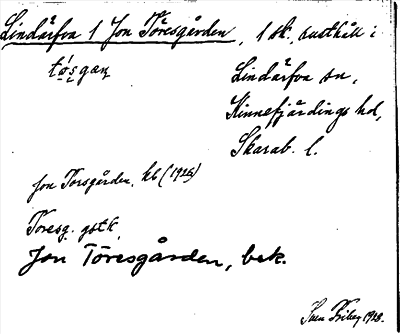 Lindärfva 1 Jon Töresgården, 1 sk. rusthåll i
tó̤sgaṇ Lindärfva sn,
Kinnefjärdings hd,
Skarab. l.
Jon Torsgården, kb (1926)
Toresg. gstk
Jon Töresgården, bek.
1928.